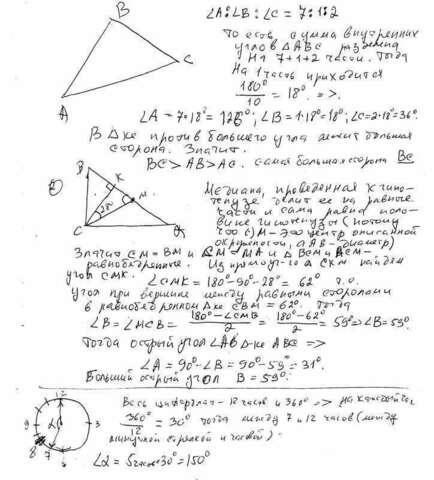 ∠A:∠B:∠C = 7:1:2
То есть сумма внутренних
углов ΔABC разделена
на 7+1+2 части. Тогда
На 1 часть приходится
180°/10 = 18° =>.
∠A = 7·18° = 126°; ∠B = 1·18° = 18°; ∠C = 2·18° = 36°.
В Δке против большего угла лежит большая
сторона. Значит.
BC > AB > AC. самая большая сторона BC
B
C
A
2)
B
K
M
28°
C
A
Медиана, проведенная к гипо-
тенузе делит ее на равные
части и сама равна поло-
вине гипотенузы (потому
что (·)M - это центр описанной
окружности, а AB - диаметр)
Значит CM = BM и CM = MA и ΔBCM и ACM-
равнобедренные. Из прямоуг-го Δ CKM найдем
угол CMK.
∠CMK = 180° - 90° - 28° = 62° т.о.
Угол при вершине между равными сторонами
в равнобедренном Δке CBM = 62°. Тогда
∠B = ∠MCB = (180° - ∠CMB)/2 = (180° - 62°)/2 = 59° => ∠B = 59°
Тогда острый угол ∠A Δке ABC =>
∠A = 90° - ∠B = 90° - 59° = 31°.
Больший острый угол B = 59°.
12
9
3
8
7
6
α
Весь циферблат - 12 часов и 360° => на каждый час
360°/12 = 30° тогда между 7 и 12 часов (между
минутной стрелкой и часовой) -
∠α = 5 · 30° = 150°